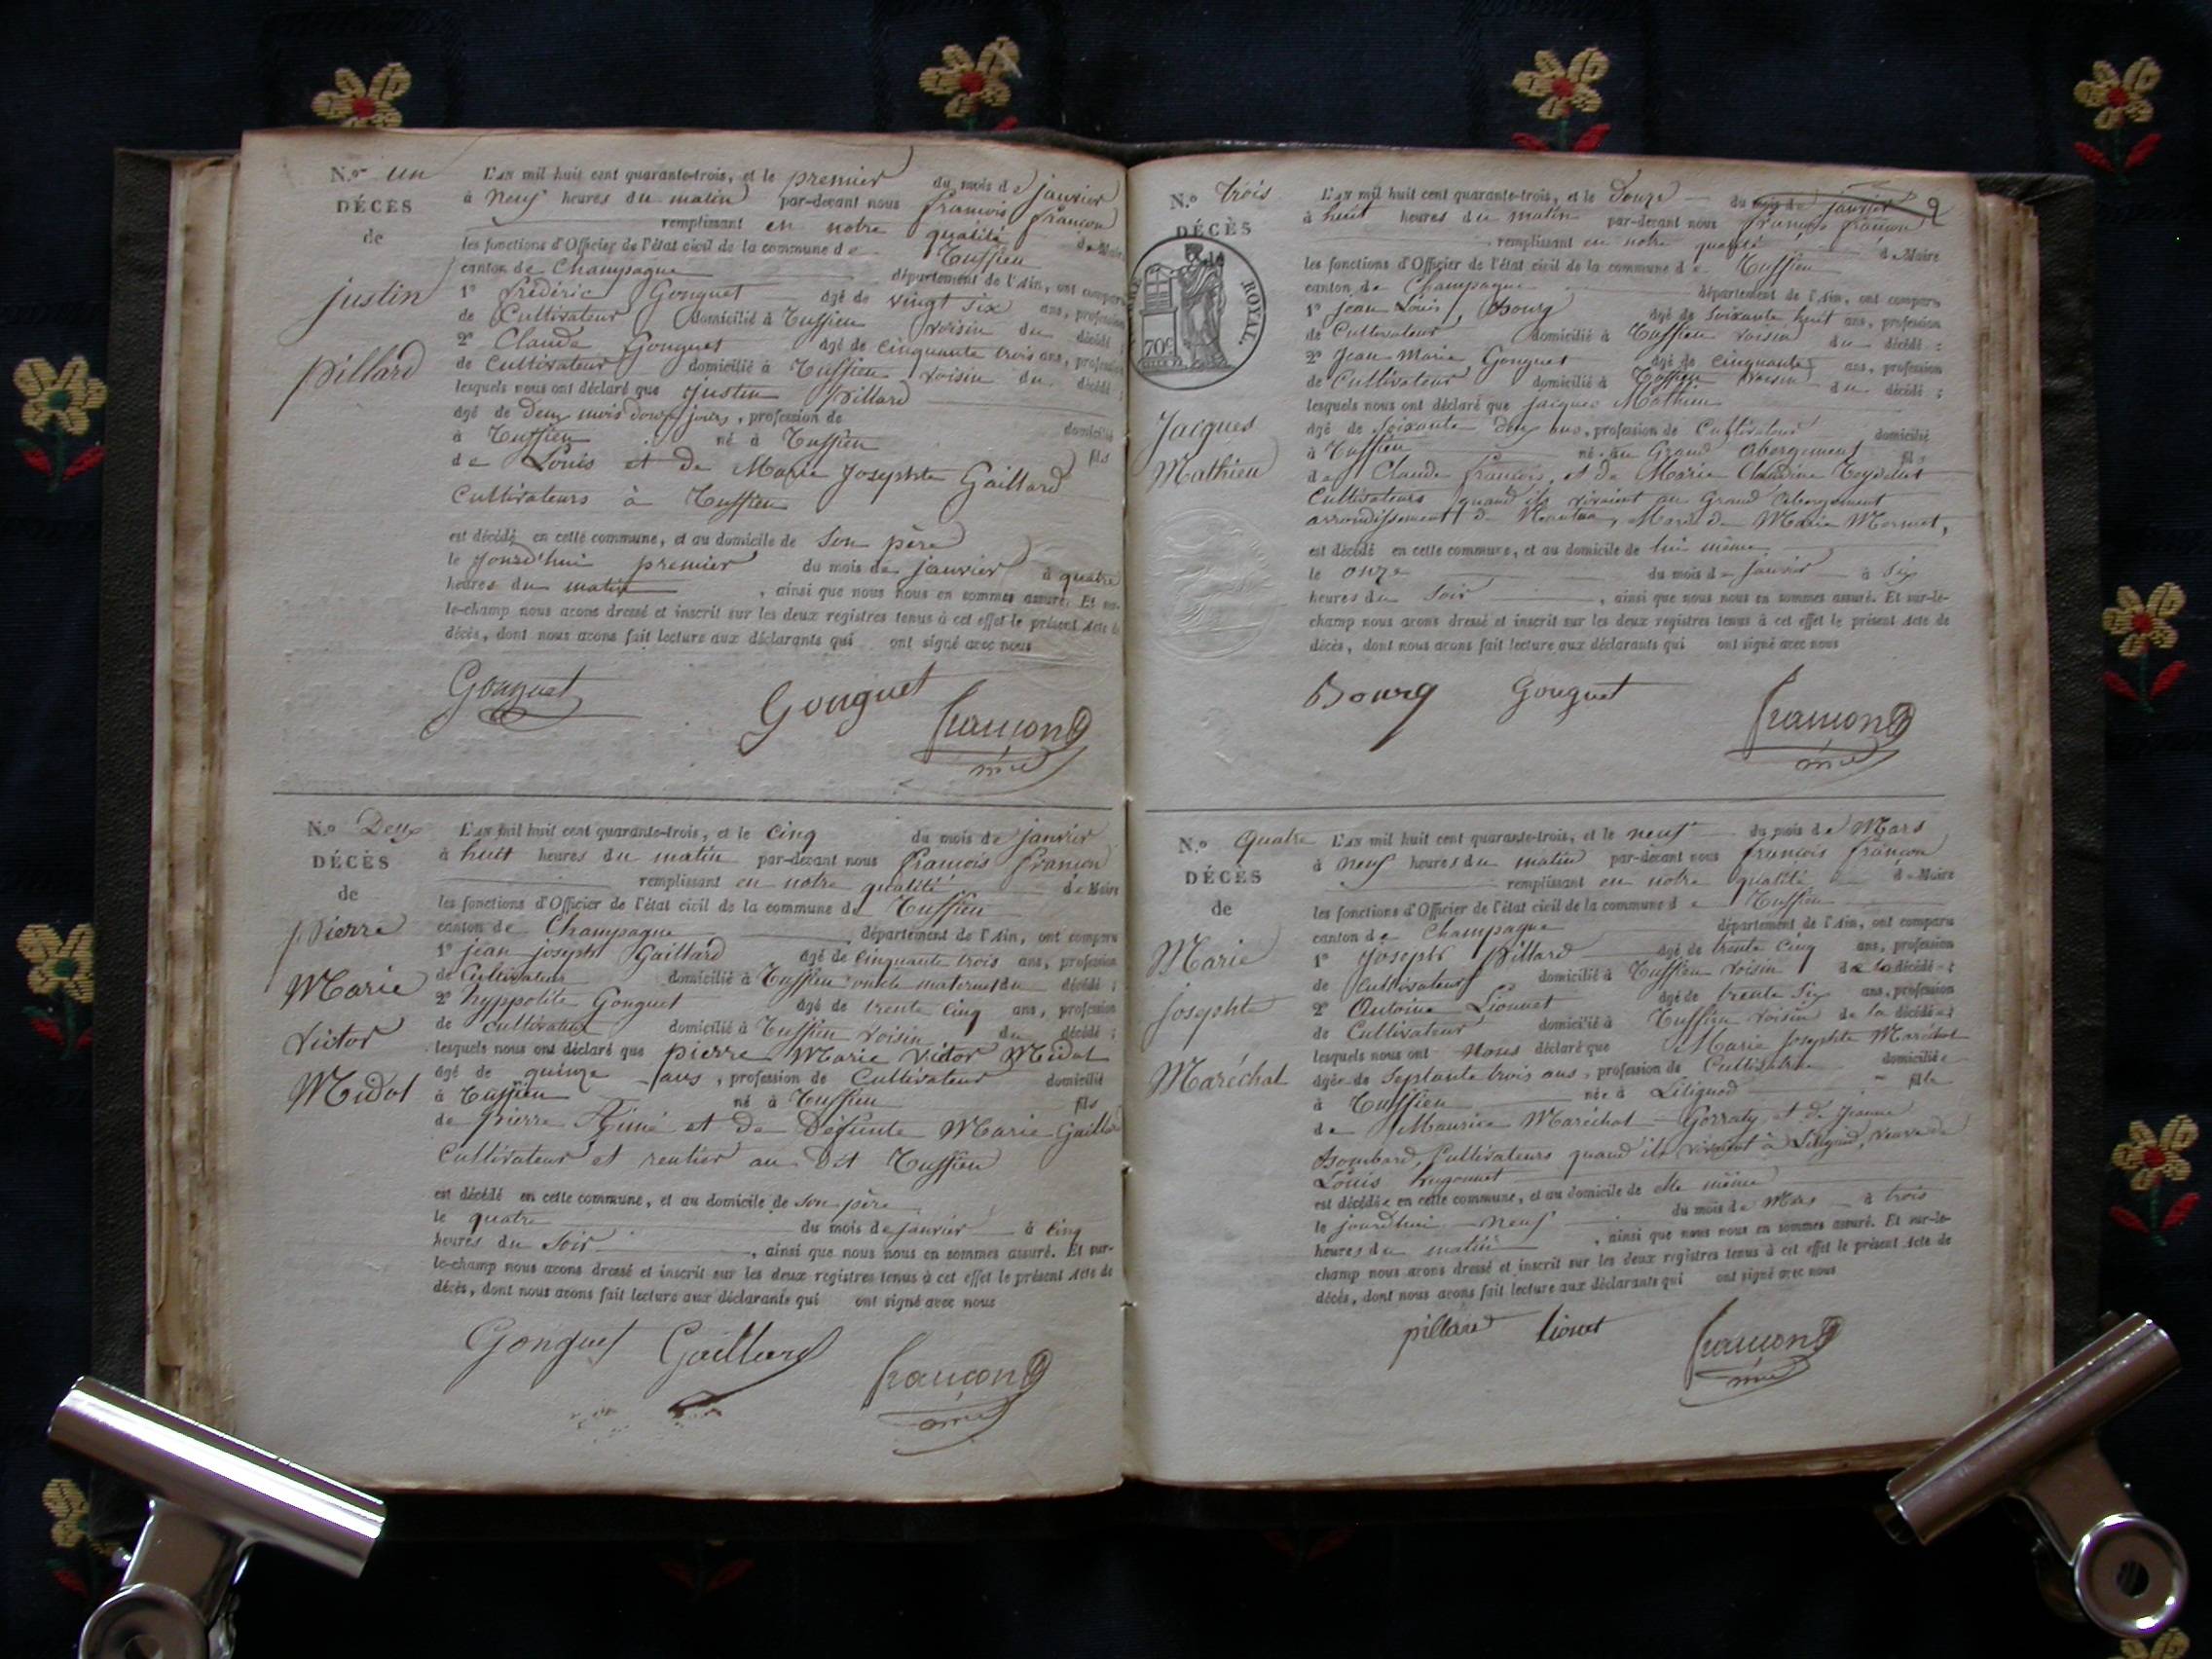 N.º un
DÉCÈS
de
justin
pillard
L'AN mil huit cent quarante-trois, et le premier du mois de janvier
à neuf heures du matin par-devant nous françois françon
remplissant en notre qualité de Maire
les fonctions d'Officier de l'état civil de la commune de
canton de Champagne département de l'Ain, ont comparu
1º frédéric Gonguet agé de vingt six ans, profession
de Cultivateur domicilié à voisin du décédé ;
2º Claude Gonguet agé de cinquante trois ans, profession
de Cultivateur domicilié à voisin du décédé ;
lesquels nous ont déclaré que justin pillard
agé de Deux mois douze jours, profession de domicilié
à né à fils
de Louis et de Marie josephte Gaillard
Cultivateurs à
est décédé en cette commune, et au domicile de son père
le jourd'hui premier du mois de janvier à quatre
heures du matin, ainsi que nous nous en sommes assuré. Et sur-
le-champ nous avons dressé et inscrit sur les deux registres tenus à cet effet le présent Acte de
décès, dont nous avons fait lecture aux déclarants qui ont signé avec nous
Gonguet Gonguet françon
N.º Deux
DÉCÈS
de
pierre
Marie
victor
Midol
L'AN mil huit cent quarante-trois, et le cinq du mois de janvier
à huit heures du matin par-devant nous françois françon
remplissant en notre qualité de Maire
les fonctions d'Officier de l'état civil de la commune de
canton de Champagne, département de l'Ain, ont comparu
1º jean joseph Gaillard agé de cinquante trois ans, profession
de Cultivateur domicilié à oncle maternel du décédé ;
2º hyppolite Gonguet agé de trente cinq ans, profession
de cultivateur domicilié à voisin du décédé ;
lesquels nous ont déclaré que pierre Marie victor Midol
agé de quinze ans, profession de Cultivateur domicilié
à né à fils
de pierre Aimé et de Défunte Marie Gaillard
Cultivateur et rentier au dit
est décédé en cette commune, et au domicile de son père
le quatre du mois de janvier à cinq
heures du soir, ainsi que nous nous en sommes assuré. Et sur-
le-champ nous avons dressé et inscrit sur les deux registres tenus à cet effet le présent Acte de
décès, dont nous avons fait lecture aux déclarants qui ont signé avec nous
Gonguet Gaillard françon
N.º trois
DÉCÈS
ROYAL.
70c
Jacques
Mathieu
L'AN mil huit cent quarante-trois, et le Douze du mois de janvier 2
à huit heures du matin par-devant nous françois françon
remplissant en notre qualité de Maire
les fonctions d'Officier de l'état civil de la commune de
canton de Champagne département de l'Ain, ont comparu
1º jean Louis Bourg agé de soixante huit ans, profession
de Cultivateur domicilié à voisin du décédé ;
2º Jean Marie Gonguet agé de cinquante ans, profession
de Cultivateur domicilié à voisin du décédé ;
lesquels nous ont déclaré que jacques Mathieu
agé de soixante deux ans, profession de Cultivateur domicilié
à né au Grand abergement fils
de Claude françois, et de Marie Claudine
Cultivateurs quand ils vivaient au Grand abergement
arrondissement de Nantua, Mari de Marie
est décédé en cette commune, et au domicile de lui même
le onze du mois de janvier à six
heures du soir, ainsi que nous nous en sommes assuré. Et sur-le-
champ nous avons dressé et inscrit sur les deux registres tenus à cet effet le présent Acte de
décès, dont nous avons fait lecture aux déclarants qui ont signé avec nous
Bourg Gonguet françon
N.º quatre
DÉCÈS
de
Marie
josephte
Maréchal
L'AN mil huit cent quarante-trois, et le neuf du mois de Mars
à neuf heures du matin par-devant nous françois françon
remplissant en notre qualité de Maire
les fonctions d'Officier de l'état civil de la commune de
canton de Champagne département de l'Ain, ont comparu
1º joseph pillard agé de trente cinq ans, profession
de Cultivateur domicilié à voisin de la décédée ;
2º Antoine Lionnet agé de trente six ans, profession
de Cultivateur domicilié à voisin de la décédée ;
lesquels nous ont Nous déclaré que Marie josephte Maréchal
agée de septante trois ans, profession de Cultivatrice domiciliée
à née à Lilignod fille
de Maurice Maréchal et de jeanne
Cultivateurs quand ils vivaient à Lilignod, veuve de
Louis hugonnet
est décédée en cette commune, et au domicile de elle même
le jourd'hui neuf du mois de Mars à trois
heures du matin, ainsi que nous nous en sommes assuré. Et sur-le-
champ nous avons dressé et inscrit sur les deux registres tenus à cet effet le présent Acte de
décès, dont nous avons fait lecture aux déclarants qui ont signé avec nous
pillard lionet françon